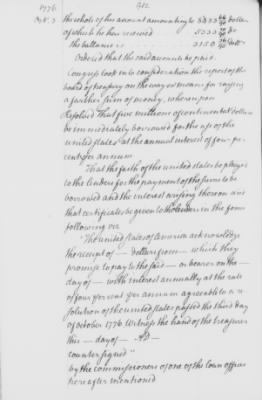 1776
Oct. 3
912
the whole of his account amounting to dollars
of which he has received 5333 Do
the ballance is 3150 Dolls
Ordered that the said accounts be paid.
Congress took into consideration the report of the
board of treasury on the ways & means for raising
a farther sum of money, whereupon
Resolved That five millions of continental dollars
be immediately borrowed for the use of the
united states at the annual interest of four per
cent per annum
That the faith of the united states be pledged
to the lenders for the payment of the sums to be
borrowed and the interest arising thereon and
that certificates be given to the lenders in the form
following viz
"The united states of America acknowledge
the receipt of — dollars from — which they
promise to pay to the said — or bearer on the —
day of — with interest annually at the rate
of four per cent per annum agreeable to a re
solution of the united states passed the third day
of october 1776. Witness the hand of the treasurer
this — day of — AD —
countersigned"
by the commissioners of one of the loan offices
hereafter mentioned